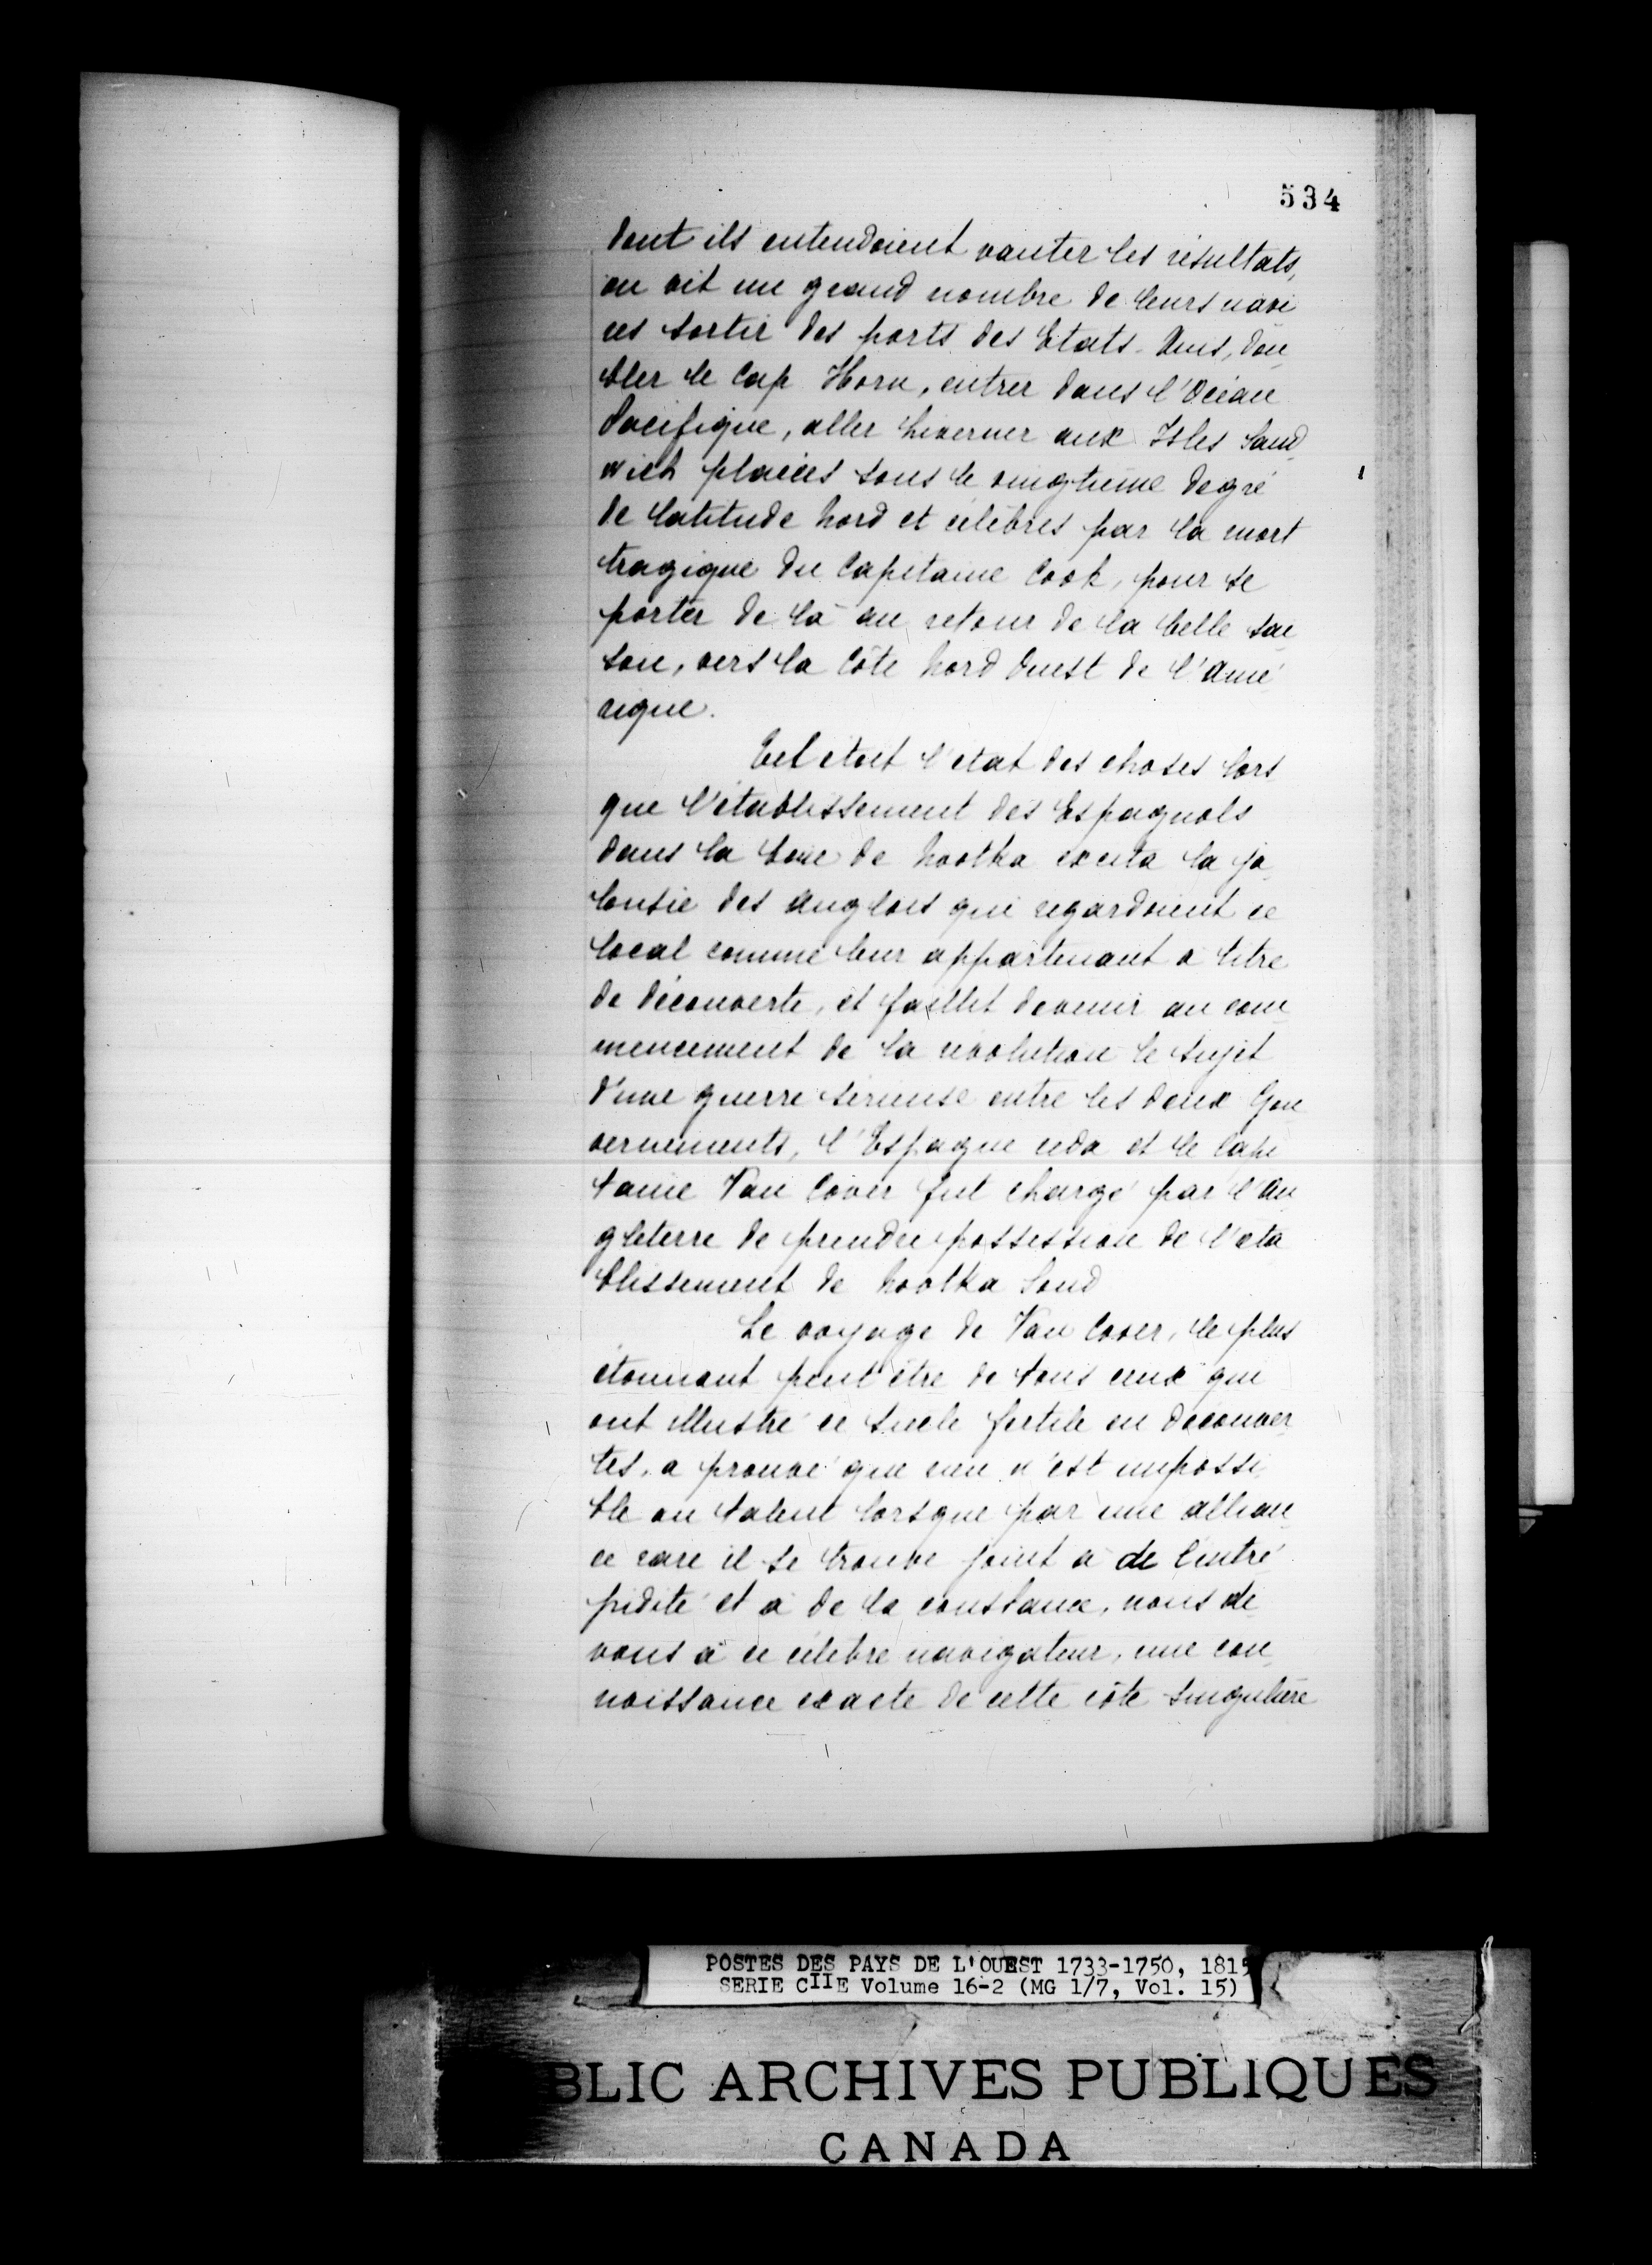 534
dont ils entendoient vanter les résultats,
on vit un grand nombre de leurs navi
res sortir des ports des Etats-Unis, dou
bler le Cap Horn, entrer dans l'Océan
Pacifique, aller hiverner aux Isles Sand
wich placées sous le vingtième degré
de latitude Nord et célèbres par la mort
tragique du Capitaine Cook, pour se
porter de là au retour de la belle sai
son, vers la Côte Nord Ouest de l'Amé
rique.
Tel étoit l'état des choses lors
que l'établissement des Espagnols
dans la baie de Nootka excita la ja
lousie des anglois qui regardoient ce
local comme leur appartenant à titre
de découverte, et faillit devenir au com
mencement de la révolution le sujet
d'une guerre sérieuse entre les deux Gou
vernements, l'Espagne céda et le Capi
taine Van Cover fut chargé par l'An
gleterre de prendre possession de l'éta
blissement de Nootka Sund
Le voyage de Van Cover, le plus
étonnant peut être de tous ceux qui
ont illustré ce siècle fertile en découver
tes, a prouvé que rien n'est impossi
ble au talent lorsque par une allian
ce rare il se trouve joint à de l'intré
pidité et à de la constance, nous de
vons à ce célèbre navigateur, une con
noissance exacte de cette côte singulière
POSTES DES PAYS DE L'OUEST 1733-1750, 1815
SERIE CIIE Volume 16-2 (MG 1/7, Vol. 15)
BLIC ARCHIVES PUBLIQUES
CANADA